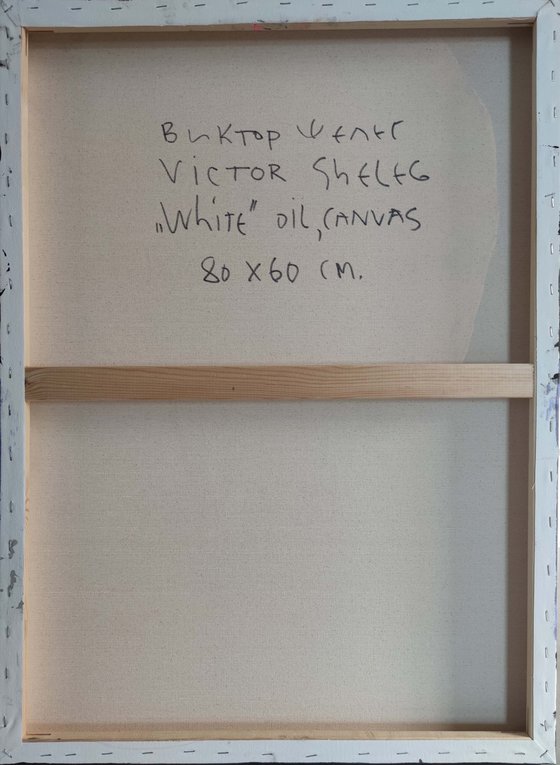 Виктор Шелег
VICTOR ShELEG
„White" OIL, CANVAS
80 X 60 CM.